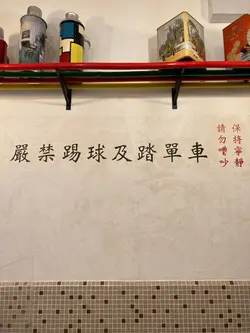 嚴禁踢球及踏單車
保持寧靜
請勿嘈吵